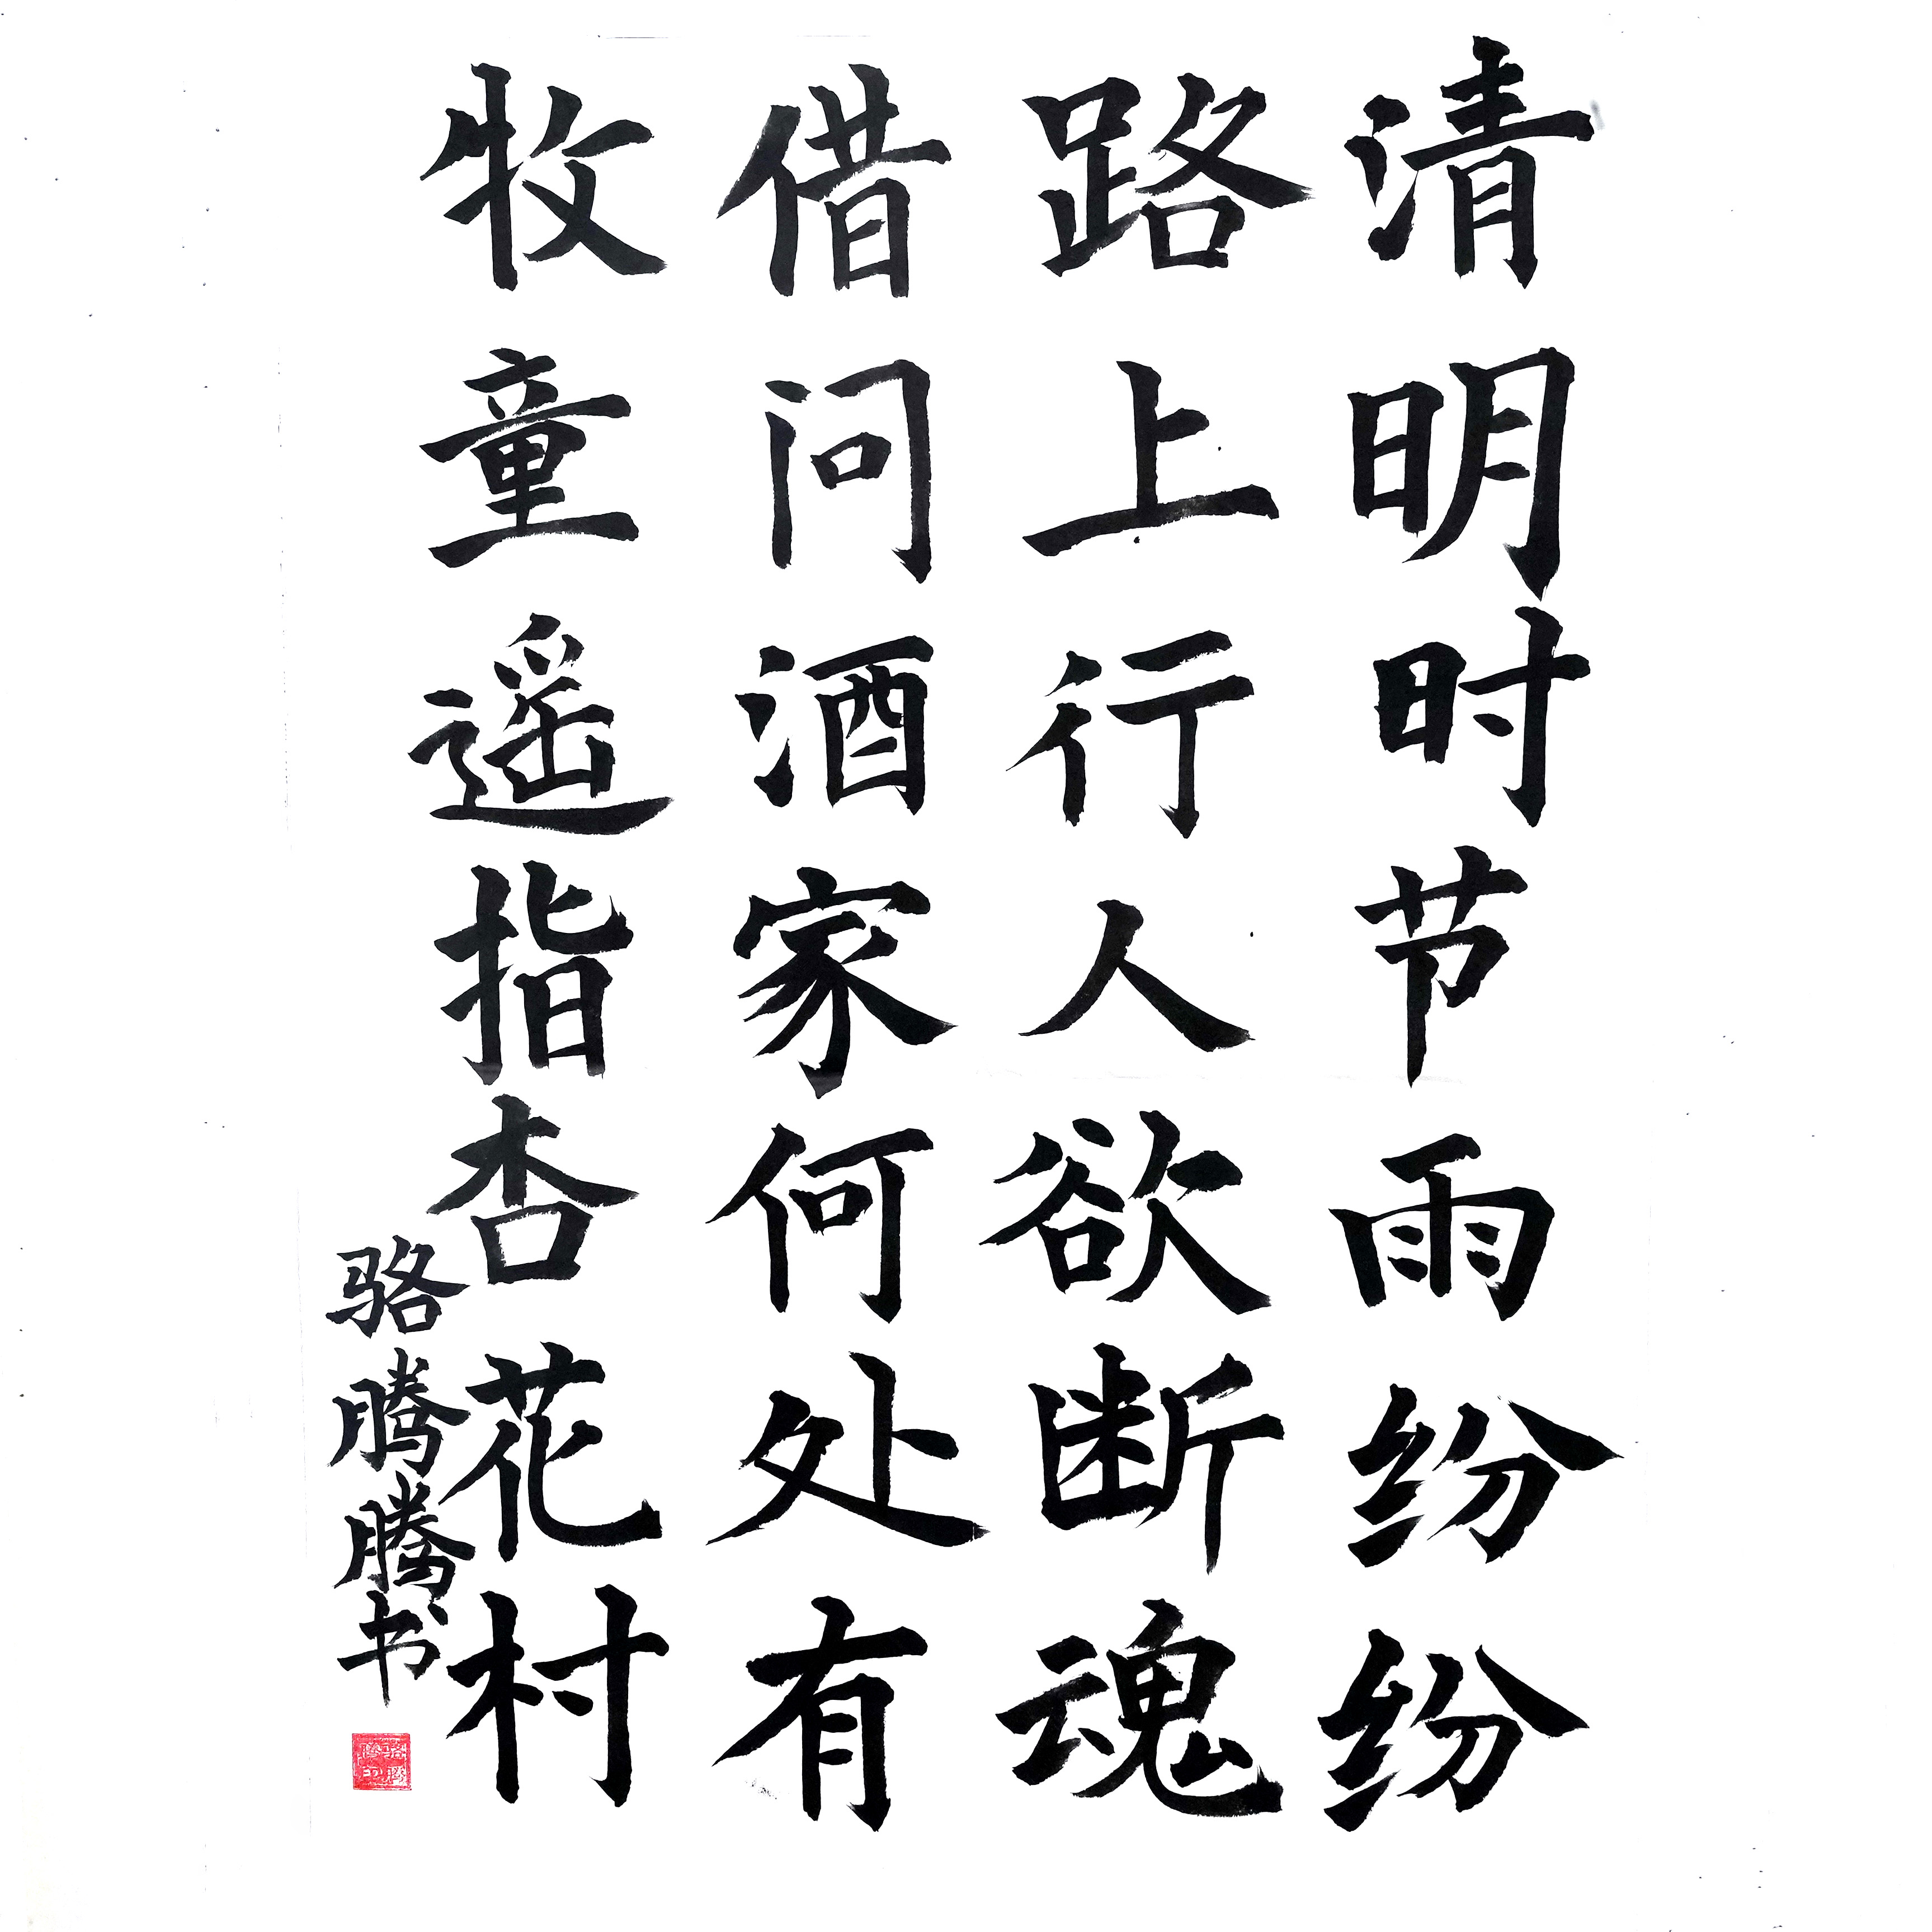 清明时节雨纷纷
路上行人欲断魂
借问酒家何处有
牧童遥指杏花村
骆腾腾书